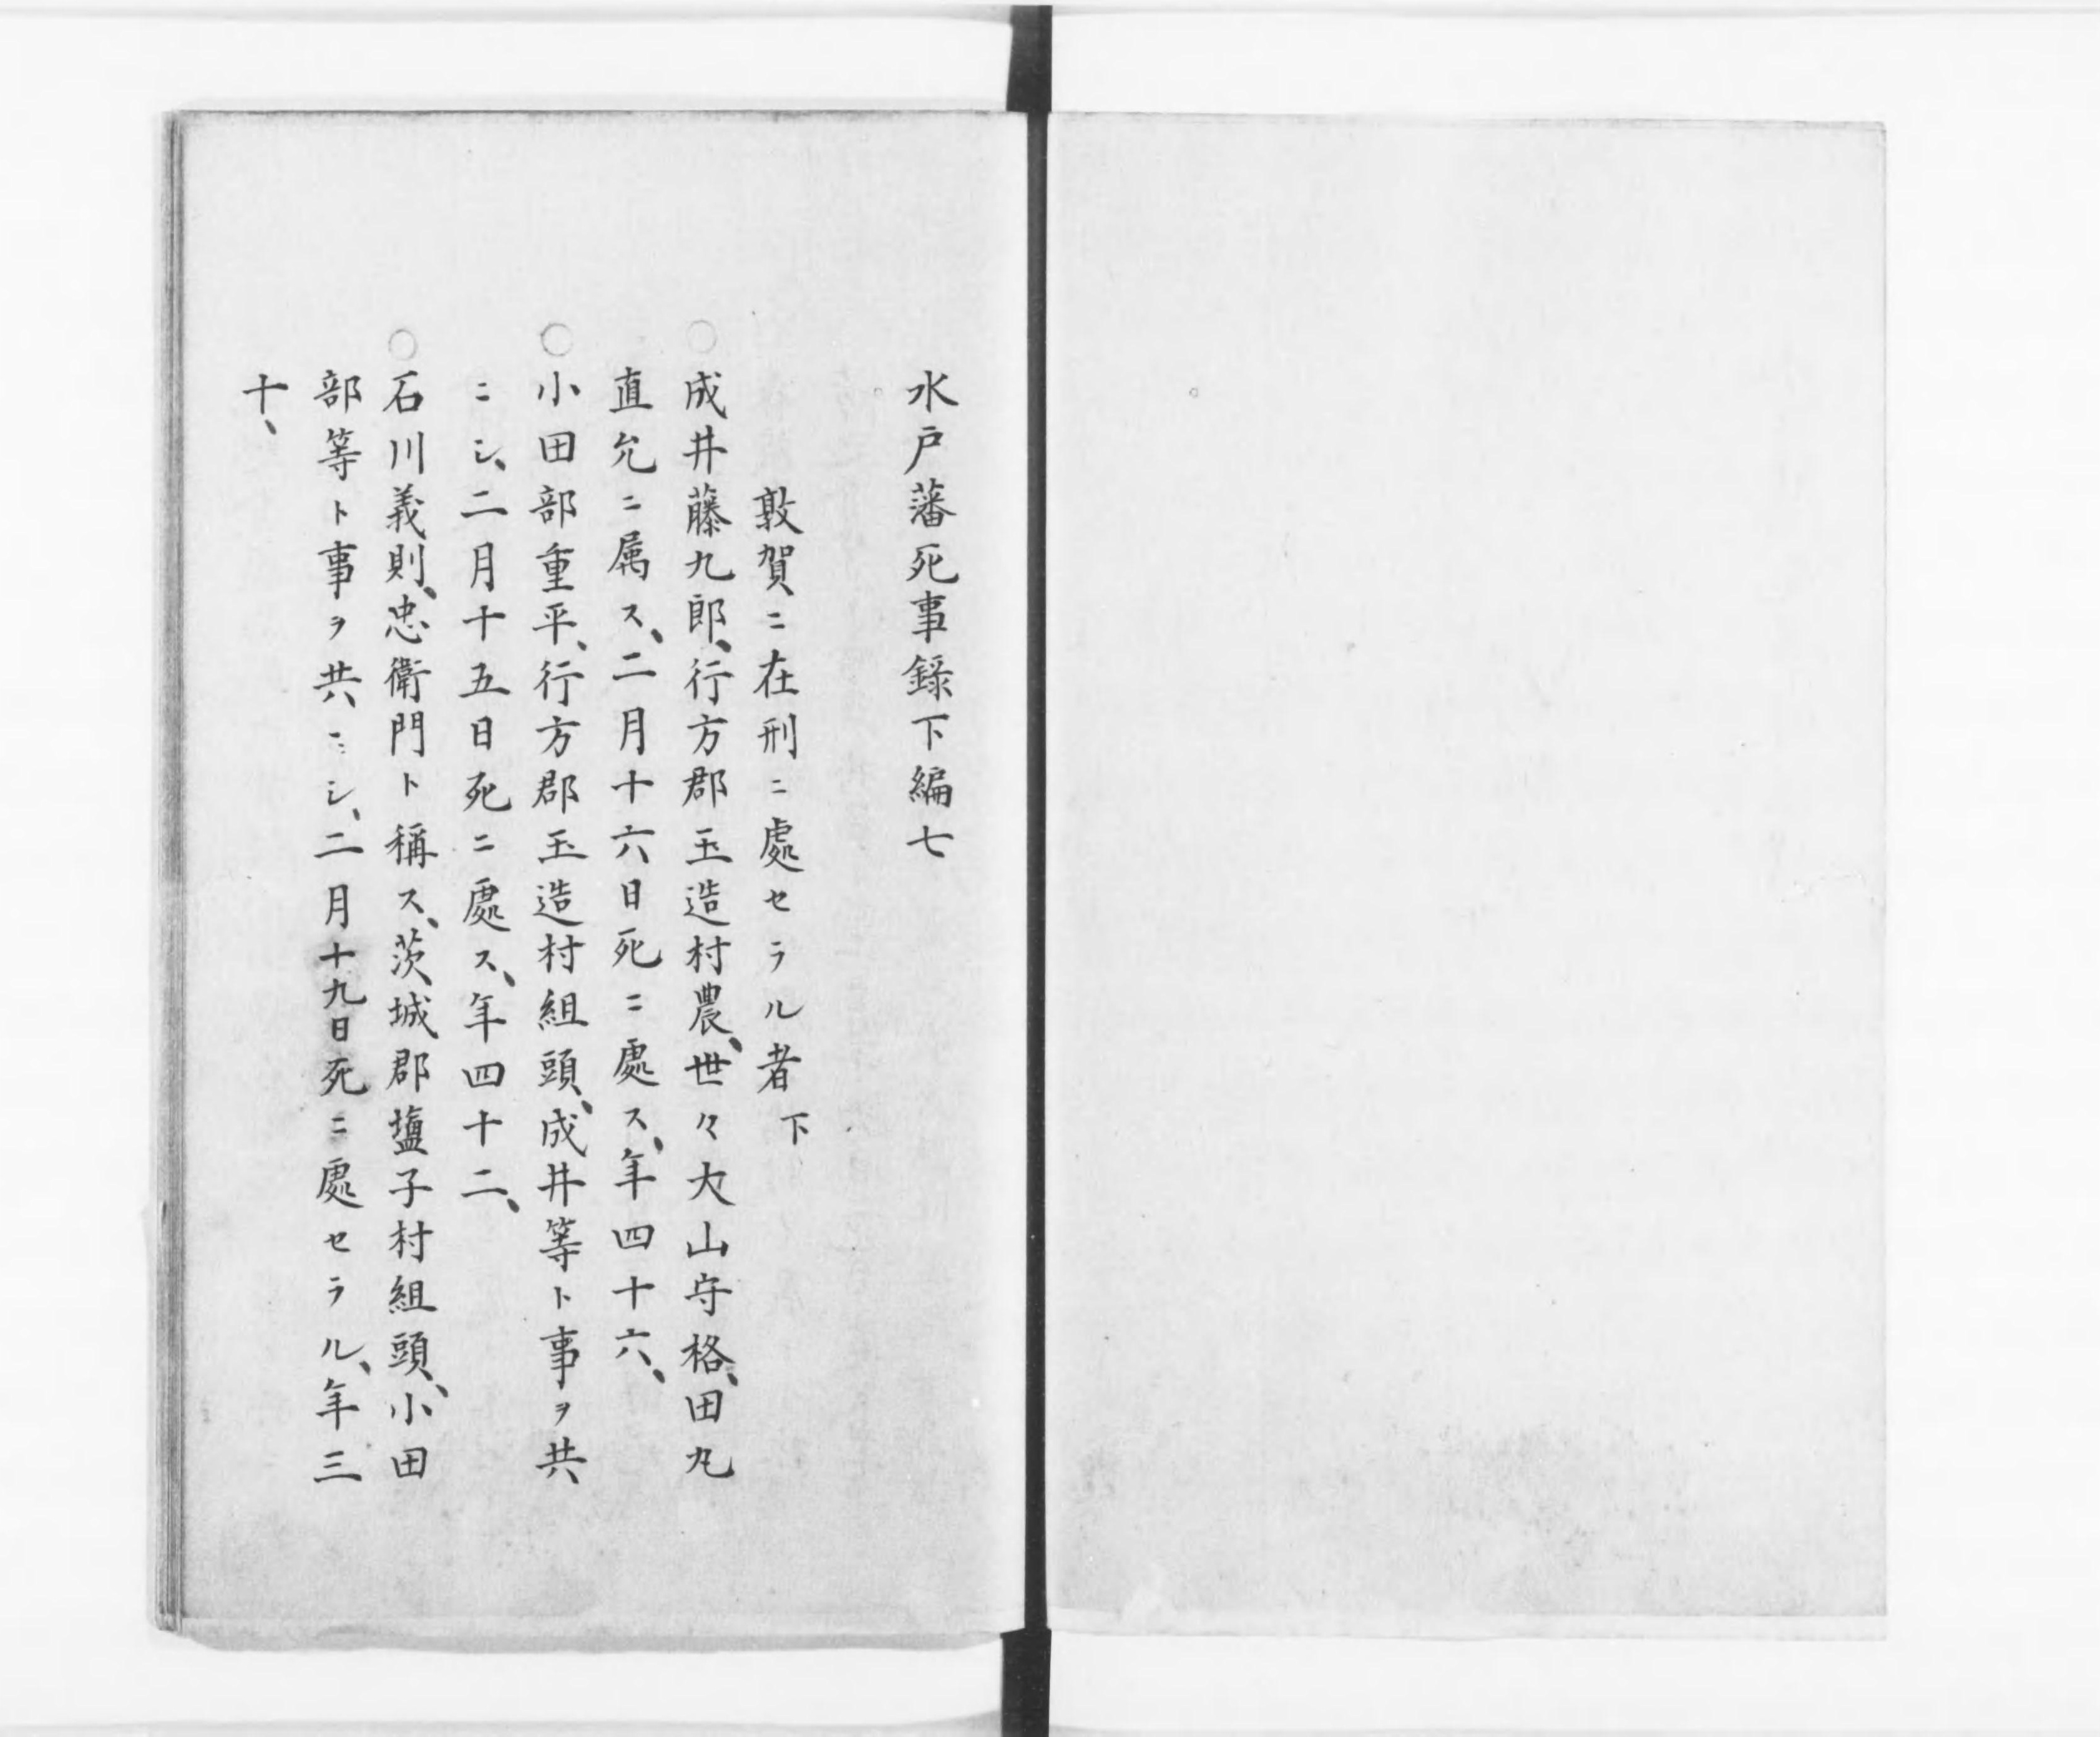 水戸藩死事錄下編七
敦賀ニ在刑ニ處セラル者下
○成井藤九郎、行方郡玉造村農、世々大山守格、田丸
直允ニ属ス、二月十六日死ニ處ス、年四十六、
○小田部重平、行方郡玉造村組頭、成井等ト事ヲ共
ニシ、二月十五日死ニ處ス、年四十二、
○石川義則、忠衛門ト稱ス、茨城郡塩子村組頭、小田
部等ト事ヲ共ニシ、二月十九日死ニ處セラル、年三
十、